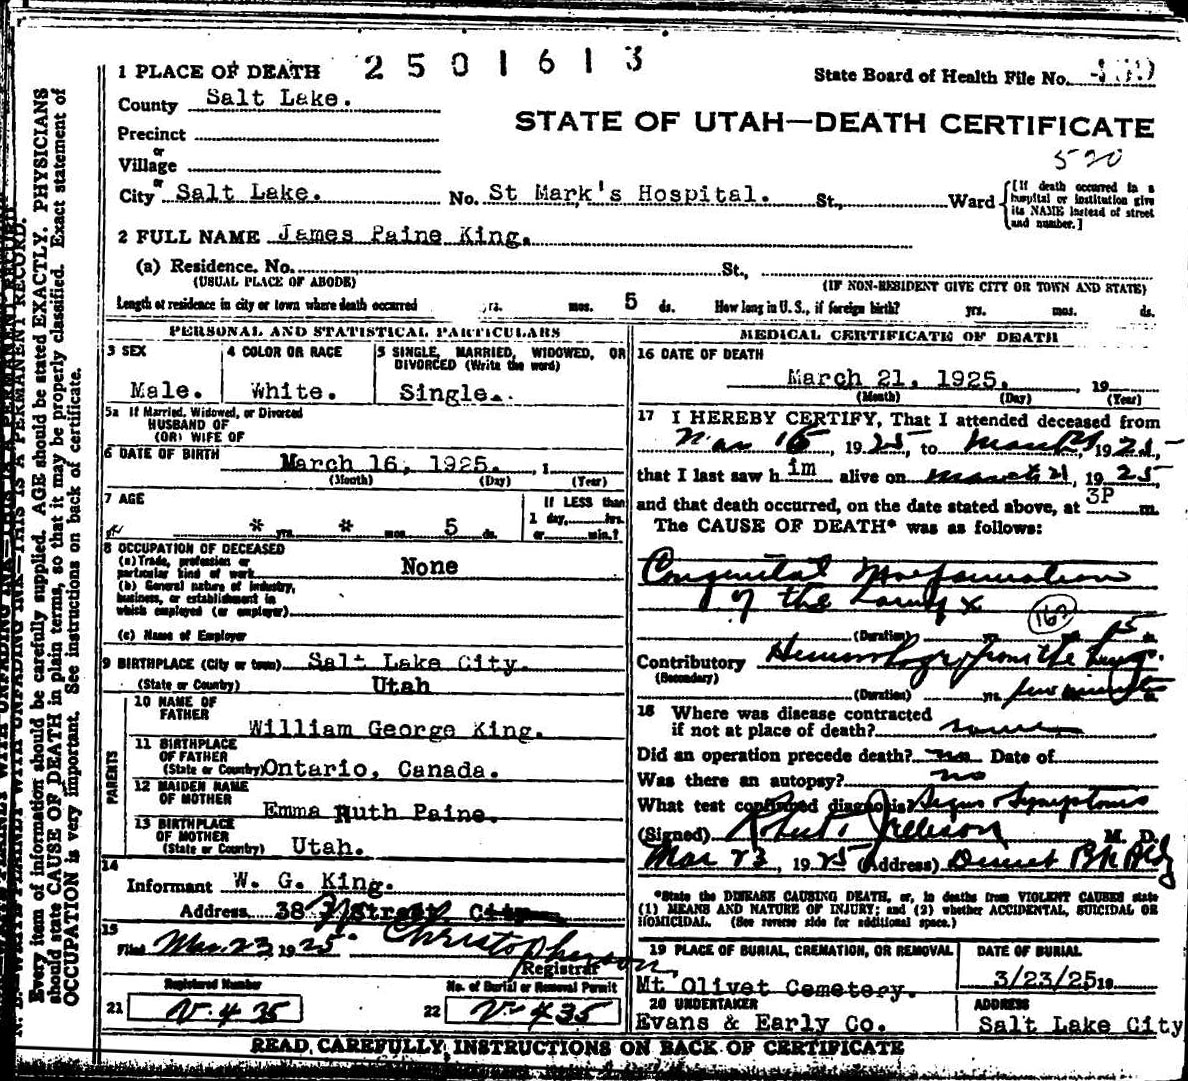 2501613
1 PLACE OF DEATH
State Board of Health File No.
County Salt Lake.
STATE OF UTAH—DEATH CERTIFICATE
Precinct
520
or
Village
or
City Salt Lake. No. St Mark's Hospital. St., Ward
[If death occurred in a hospital or institution give its NAME instead of street and number.]
2 FULL NAME James Paine King.
(a) Residence. No. St.,
(USUAL PLACE OF ABODE) (IF NON-RESIDENT GIVE CITY OR TOWN AND STATE)
Length of residence in city or town where death occurred yrs. mos. 5 ds. How long in U.S., if foreign birth? yrs. mos. ds.
PERSONAL AND STATISTICAL PARTICULARS
3 SEX
Male.
4 COLOR OR RACE
White.
5 SINGLE, MARRIED, WIDOWED, OR
DIVORCED (Write the word)
Single.
5a If Married, Widowed, or Divorced
HUSBAND OF
(OR) WIFE OF
6 DATE OF BIRTH
March 16, 1925. 1
(Month) (Day) (Year)
7 AGE
* yrs. * mos. 5 ds.
If LESS than
1 day, hrs.
or min.?
8 OCCUPATION OF DECEASED
(a) Trade, profession or
particular kind of work None
(b) General nature of industry,
business, or establishment in
which employed (or employer)
(c) Name of Employer
9 BIRTHPLACE (City or town) Salt Lake City.
(State or Country) Utah
PARENTS
10 NAME OF
FATHER
William George King.
11 BIRTHPLACE
OF FATHER
(State or Country) Ontario, Canada.
12 MAIDEN NAME
OF MOTHER Emma Ruth Paine.
13 BIRTHPLACE
OF MOTHER
(State or Country) Utah.
14
Informant W. G. King.
Address 38 J Street City
15
Filed Mar. 23 1925. Christopherson
Registrar
Registered Number
21 V.435
No. of Burial or Removal Permit
22 V-435
MEDICAL CERTIFICATE OF DEATH
16 DATE OF DEATH
March 21, 1925. , 19
(Month) (Day) (Year)
17 I HEREBY CERTIFY, That I attended deceased from
Mar 16, 1925, to March 21 1925,
that I last saw him alive on March 21, 1925,
and that death occurred, on the date stated above, at 3P m.
The CAUSE OF DEATH* was as follows:
Congenital Malformation
of the Larynx
(Duration) yrs. 5 ds.
Contributory Hemorrhage from the lungs.
(Secondary)
(Duration) yrs. few minutes
18 Where was disease contracted
if not at place of death?
Did an operation precede death? no Date of
Was there an autopsy? no
What test confirmed diagnosis? Signs Symptoms
(Signed) Robert Jellison M. D.
Mar 23, 1925 (Address) Deseret Bk Bldg
*State the DISEASE CAUSING DEATH, or, in deaths from VIOLENT CAUSES state
(1) MEANS AND NATURE OF INJURY; and (2) whether ACCIDENTAL, SUICIDAL OR
HOMICIDAL. (See reverse side for additional space.)
19 PLACE OF BURIAL, CREMATION, OR REMOVAL
Mt Olivet Cemetery.
DATE OF BURIAL
3/23/25 19
20 UNDERTAKER
Evans & Early Co.
ADDRESS
Salt Lake City
READ CAREFULLY INSTRUCTIONS ON BACK OF CERTIFICATE
Every item of information should be carefully supplied. AGE should be stated EXACTLY. PHYSICIANS
should state CAUSE OF DEATH in plain terms, so that it may be properly classified. Exact statement of
OCCUPATION is very important. See instructions on back of certificate.